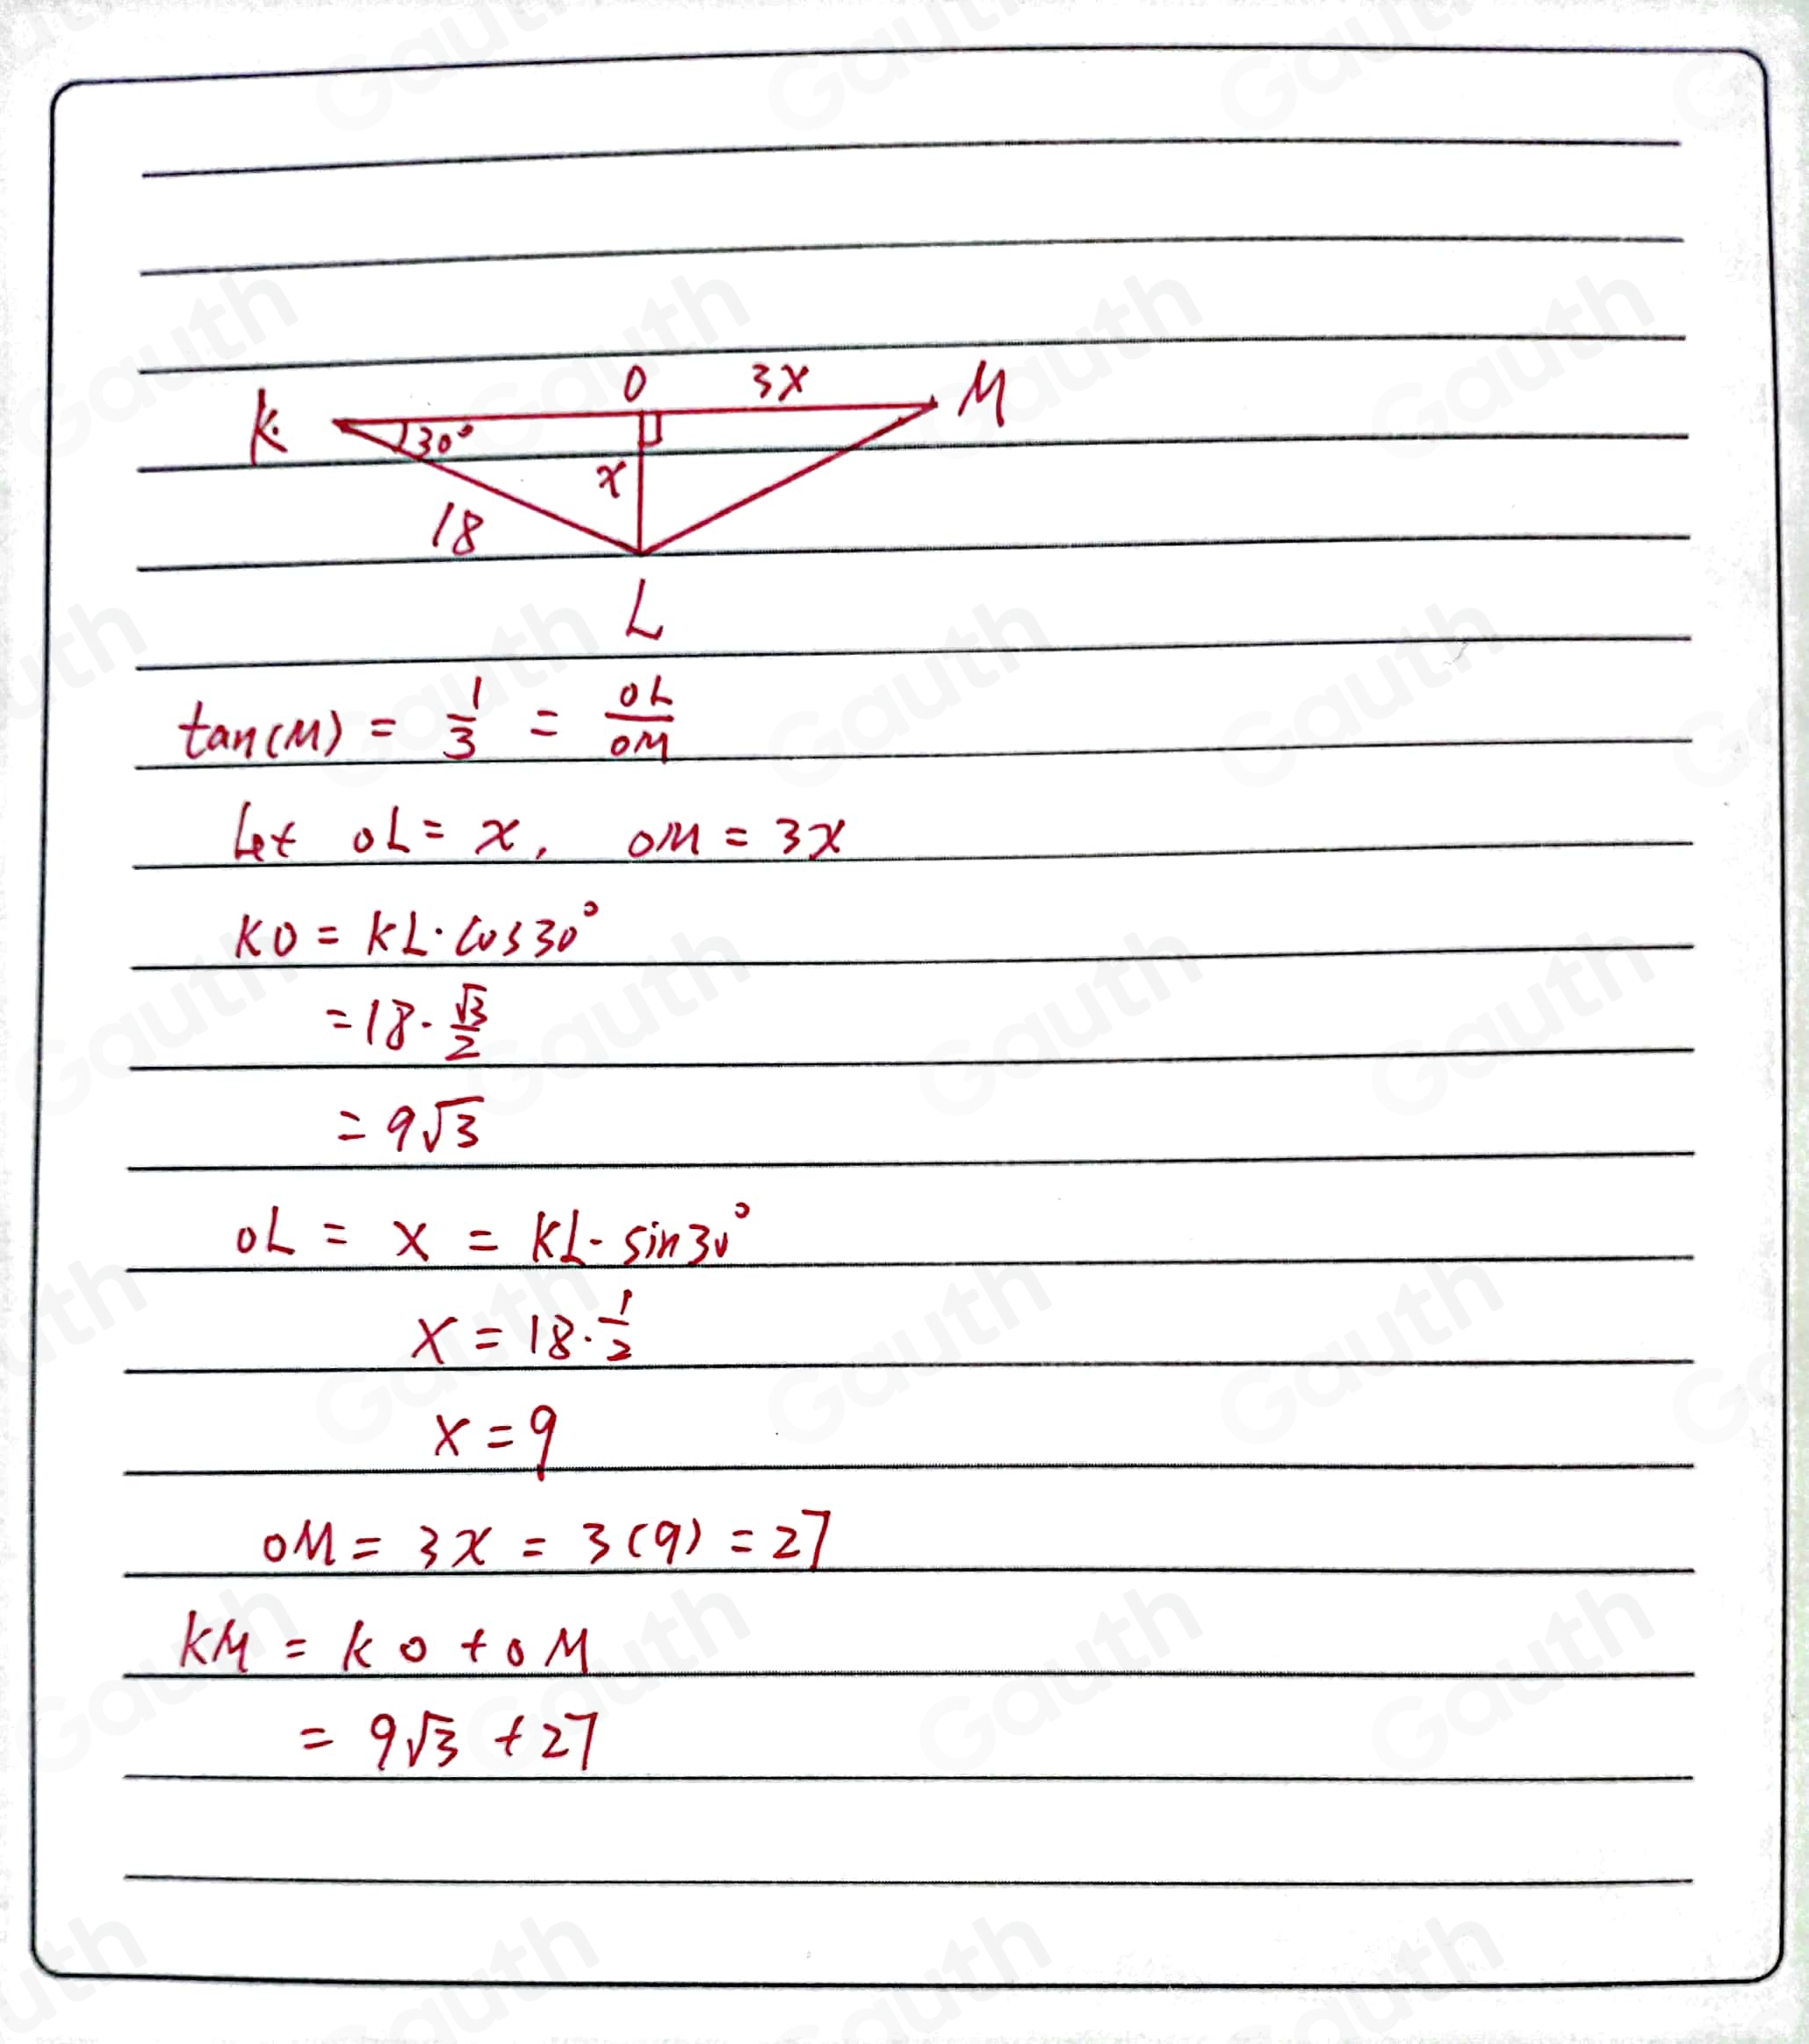 K O 3x M
30°
x
18
L
tan(M) = 1/3 = OL/OM
Let OL = x, OM = 3x
KO = KL · cos30°
= 18 · √3/2
= 9√3
OL = x = KL · sin30°
x = 18 · 1/2
x = 9
OM = 3x = 3(9) = 27
KM = KO + OM
= 9√3 + 27
Gauth